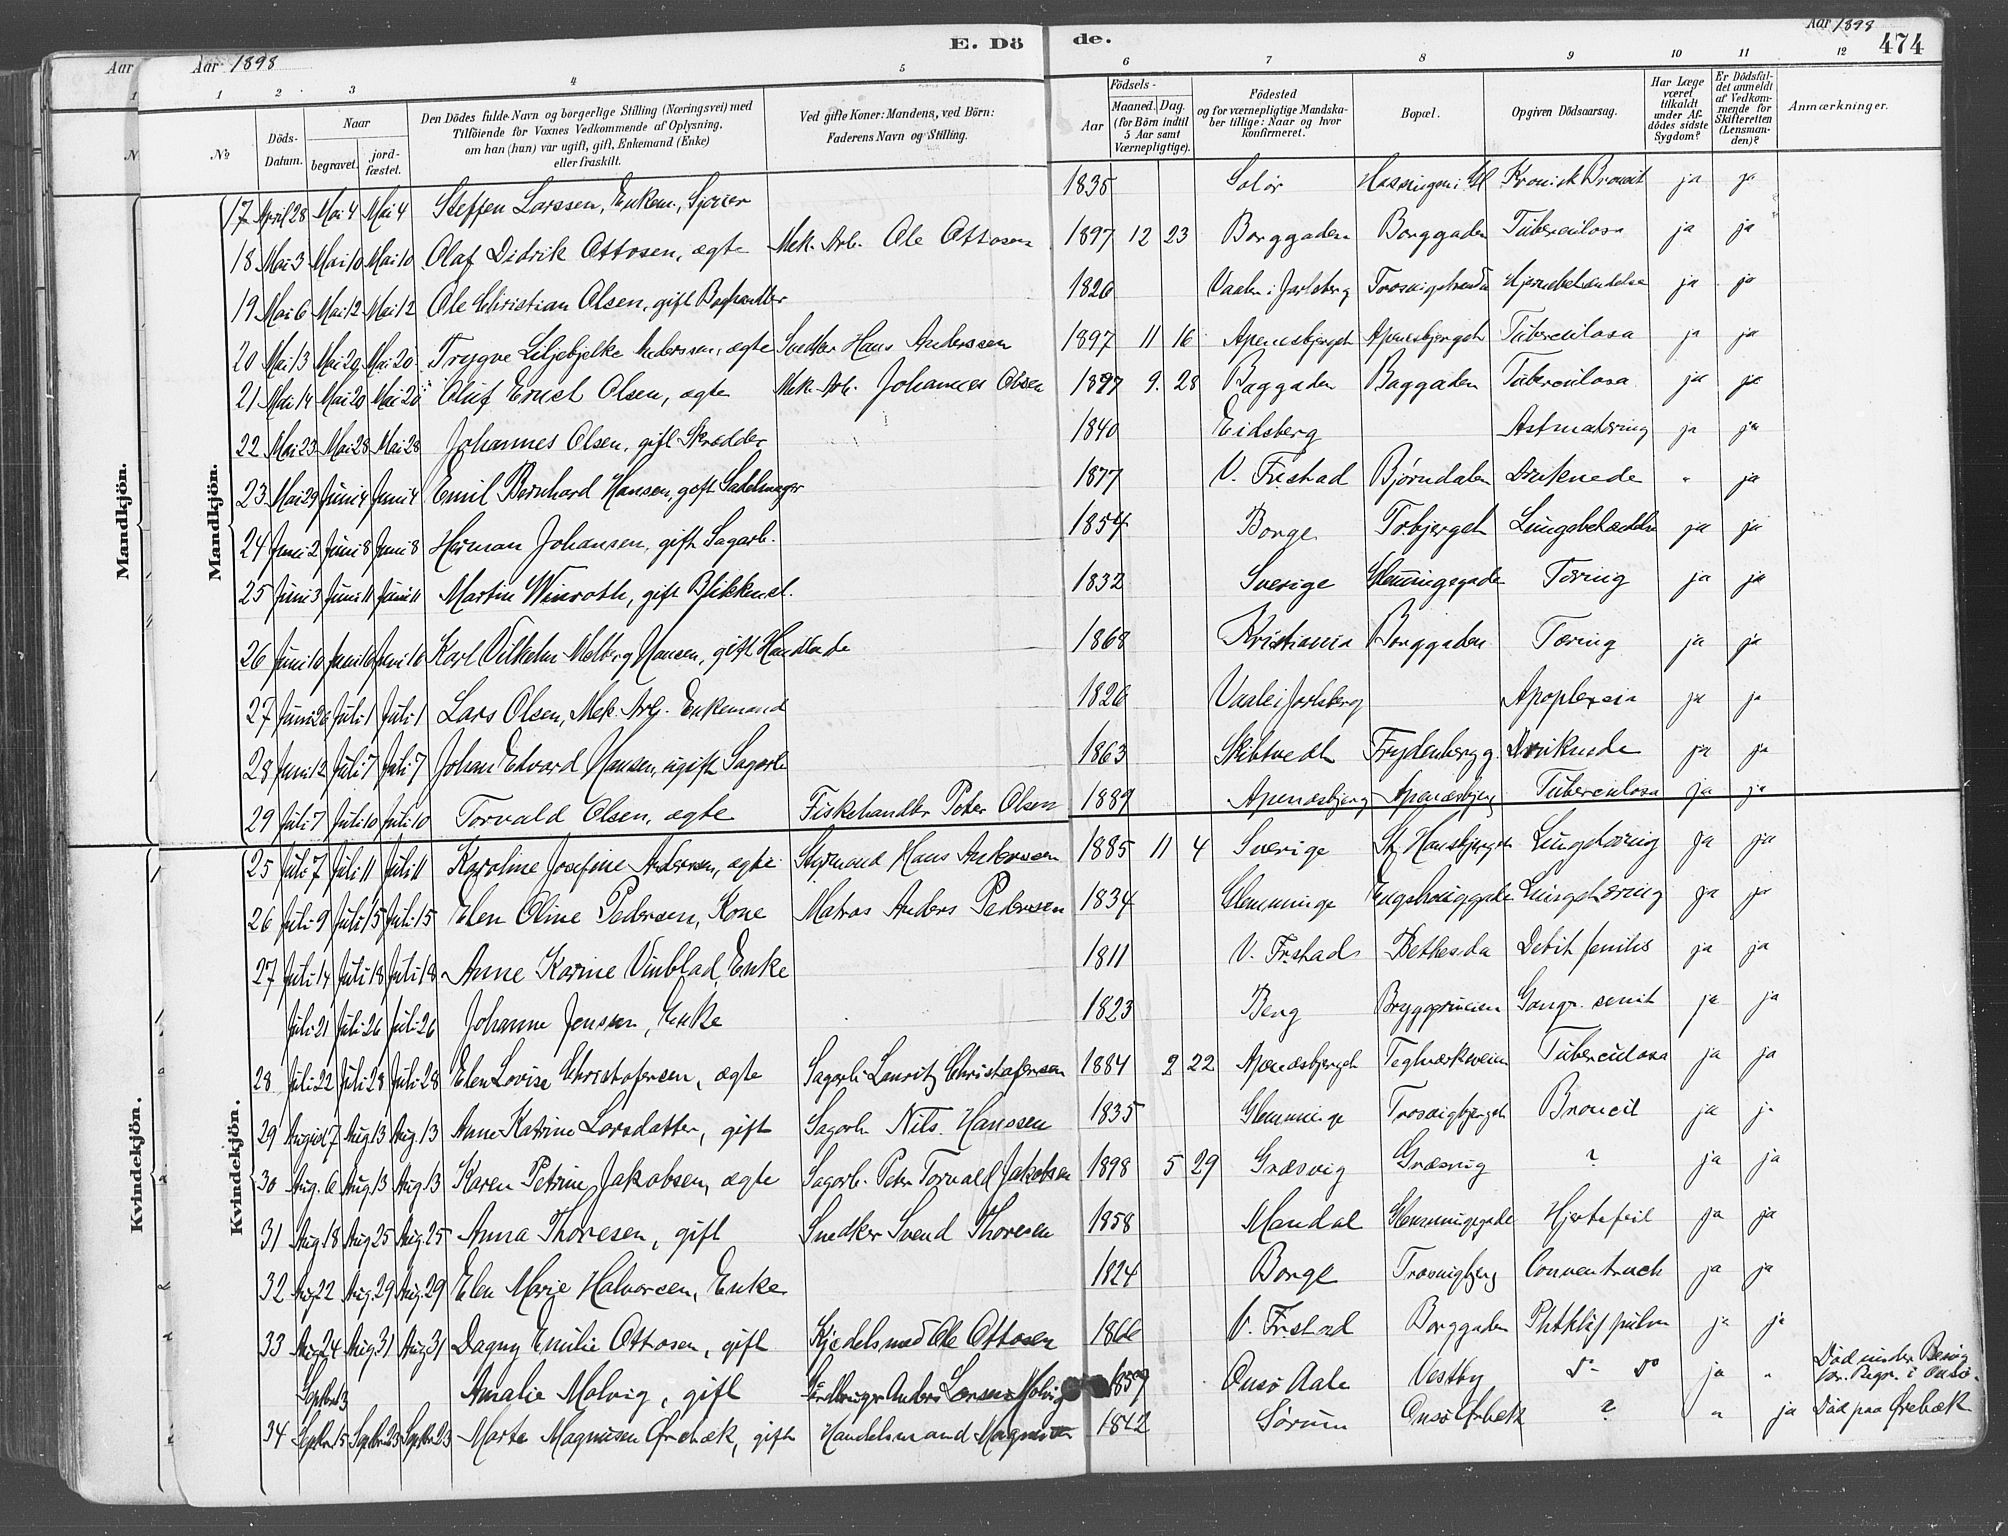 Aar
Aar 1898
E. Dö de.
Aar 1898
474
1 2 3 4 5 6 7 8 9 10 11 12
No
Döds-Datum.
Naar
begravet. jordfæstet.
Den Dödes fulde Navn og borgerlige Stilling (Næringsvei) med
Tilföiende for Voxnes Vedkommende af Oplysning,
om han (hun) var ugift, gift, Enkemand (Enke)
eller fraskilt.
Ved gifte Koner: Mandens, ved Börn:
Faderens Navn og Stilling.
Födsels-
Aar
Maaned. Dag.
(for Börn indtil
5 Aar samt
Værnepligtige).
Födested
og for værnepligtige Mandska-
ber tillige: Naar og hvor
konfirmeret.
Bopæl.
Opgiven Dödsaarsag.
Har Læge
været
tilkaldt
under Af-
dödes sidste
Sygdom?
Er Dödsfal-
det anmeldt
af Vedkom-
mende for
Skifteretten
(Lensman-
den)?
Anmærkninger.
Mandkjön.
Mandkjön.
17 April 28 Mai 4 Mai 4 Steffen Larssen, Enkem., 1835 Solør Kronisk Bronkit ja ja
18 Mai 3 Mai 10 Mai 10 Olaf Didrik Ottosen, ægte Mek. Arb. Ole Ottosen 1897 12 23 Borggaden Borggaden Tuberculosa ja ja
19 Mai 6 Mai 12 Mai 12 Ole Christian Olsen, gift Baghandler 1826 Vaale i Jarlsberg ja ja
20 Mai 13 Mai 20 Mai 20 Trygve Liljebjelke Anderssen, ægte Snedker Hans Anderssen 1897 11 16 Apenesbjerget Apenesbjerget Tuberculosa ja ja
21 Mai 14 Mai 20 Mai 20 Oluf Ernst Olsen, ægte Mek. Arb. Johannes Olsen 1897 9. 28 Baggaden Baggaden Tuberculosa ja ja
22 Mai 23 Mai 28 Mai 28 Johannes Olsen, gift Skrædder 1840 Eidsberg ja ja
23 Mai 29 Juni 4 Juni 4 Emil Bernhard Hansen, gift Sadelmager 1877 V. Fr.stad Bjørndalen Druknede " ja
24 Juni 2 Juni 8 Juni 8 Herman Johansen, gift Sagarb. 1854 Borge Torbjerget ja ja
25 Juni 3 Juni 11 Juni 11 Martin Winroth, gift Blikkensl. 1832 Sverige Glemmingegade Tæring ja ja
26 Juni 10 Juni 10 Juni 10 Karl Vilhelm Melberg Hansen, gift Handlende 1868 Kristiania Borggaden Tæring ja ja
27 Juni 26 Juli 1 Juli 1 Lars Olsen, Mek. Arb. Enkemand 1826 Vaale i Jarlsberg Apoplexia ja ja
28 Juni 12 Juli 7 Juli 7 Johan Edvard Hansen, ugift Sagarb 1863 Skibtvedt Frydenberg g Druknede ja ja
29 Juli 7 Juli 10 Juli 10 Torvald Olsen, ægte Fiskehandler Peter Olsen 1889 Apenæsbjerg Apenæsbjerg Tuberculosa ja ja
Kvindekjön.
Kvindekjön.
25 Juli 7 Juli 11 Juli 11 Karoline Josefine Andersen, ægte Styrmand Hans Andersen 1885 11 4 Sverige St. Hansbjerget Lungetæring ja ja
26 Juli 9 Juli 15 Juli 15 Elen Oline Pedersen, Kone Matros Anders Pedersen 1834 Glemminge Lungetæring ja ja
27 Juli 14 Juli 18 Juli 18 Anne Karine Vinblad, Enke 1811 V. Fr.stad Bethesda Debit. senilis ja ja
Juli 21 Juli 26 Juli 26 Johanne Jensen, Enke 1823 Berg Gangr. senil ja ja
28 Juli 22 Juli 28 Juli 28 Elen Lovise Christofersen, ægte Sagarb. Lauritz Christofersen 1884 2 22 Apenæsbjerget Teglværksveien Tuberculosa ja ja
29 August 7 Aug. 13 Aug. 13 Anne Katrine Larsdatter, gift Sagarb. Nils Hanssen 1835 Glemminge Trosvigbjerget Broncit ja ja
30 Aug. 6 Aug 13 Aug 13 Karen Petrine Jakobsen, ægte Sagarb. Peter Torvald Jakobsen 1898 5 29 Græsvig Græsvig ? ja ja
31 Aug. 18 Aug 25 Aug. 25 Anna Thoresen, gift Snedker Svend Thoresen 1858 Mandal Glemmingegade Hjertefeil ja ja
32 Aug 22 Aug. 29 Aug. 29 Elen Marie Halvorsen, Enke 1824 Borge Trosvigbjerg ja ja
33 Aug 24 Aug 31 Aug 31 Dagny Emilie Ottosen, gift Kjedelsmed Ole Ottosen 1866 V. Fr.stad Borggaden ja ja
Septbr 3 Amalie Molvig, gift Anders Larsen Molvig 1859 Onsø Aale Vestby do do ja " Død under Besøg
i Onsø.
34 Septbr 15 Septbr 23 Septbr 23 Marte Magnusen Ørebæk, gift Handelsmand Magnusen 1842 Sørum Onsø Ørebæk ? " ja Død paa Ørebæk